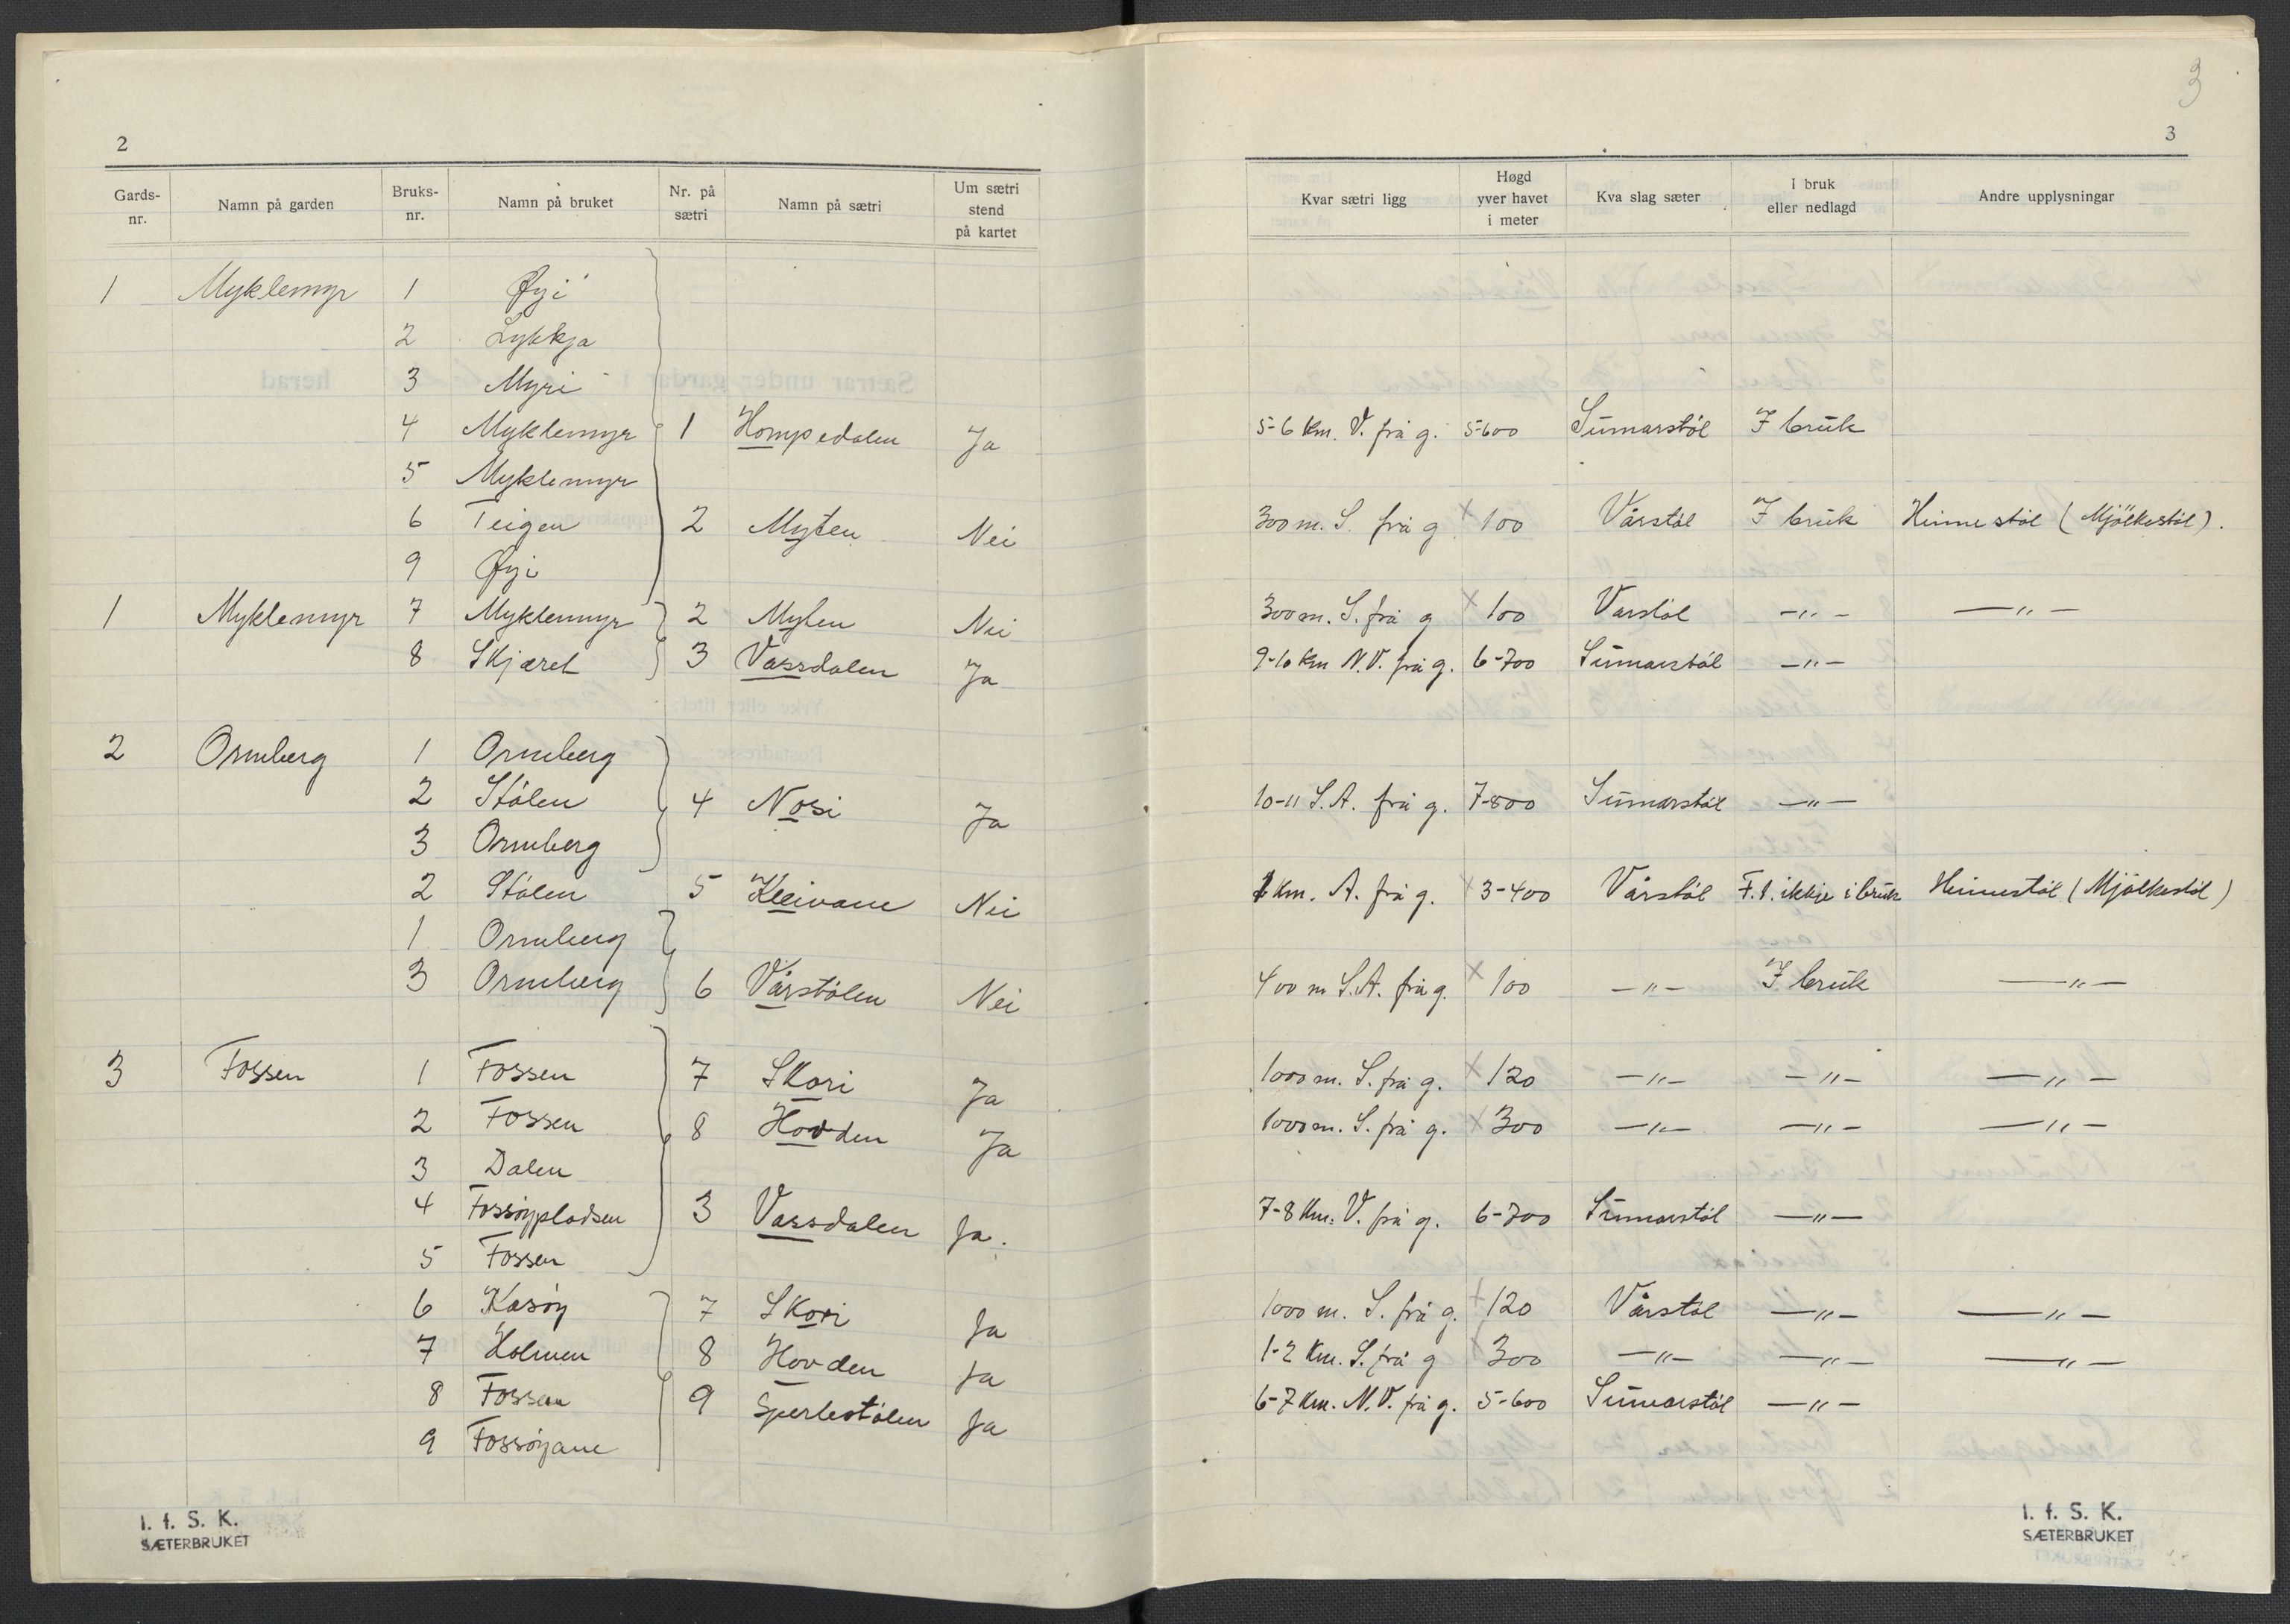 2
Gards-nr. Namn på garden Bruks-nr. Namn på bruket Nr. på sætri Namn på sætri Um sætri stend på kartet
1 Myklemyr 1 Øyi
2 Lykkja
3 Myri
4 Myklemyr 1 Hompedalen Ja
5 Myklemyr
6 Teigen 2 Myten Nei
9 Øyi
1 Myklemyr 7 Myklemyr 2 Myten Nei
8 Skjæret 3 Vassdalen Ja
2 Ormberg 1 Ormberg
2 Stölen 4 Nosi Ja
3 Ormberg
2 Stölen 5 Kleivane Nei
1 Ormberg
3 Ormberg 6 Vårstölen Nei
3 Fossen 1 Fossen 7 Skori Ja
2 Fossen 8 Hovden Ja
3 Dalen
4 Fossöypladsen 3 Vassdalen Ja.
5 Fossen
6 Kasöy 7 Skori Ja
7 Holmen 8 Hovden Ja
8 Fossen 9 Sperlestölen Ja
9 Fossöyane
I. f. S. K.
SÆTERBRUKET
3
3
Kvar sætri ligg Høgd yver havet i meter Kva slag sæter I bruk eller nedlagd Andre upplysningar
5-6 km. V. frå g. 5-600 Sumarstöl I bruk
300 m. S. frå g x 100 Vårstöl I bruk Heimestöl (Mjölkestöl).
300 m. S. frå g x 100 Vårstöl -„- -„-
9-10 km N.V. frå g. 6-700 Sumarstöl -„-
10-11 S.A. frå g. 7-800 Sumarstöl -„-
1 km. A. frå g. x 3-400 Vårstöl F.t. ikkje i bruk Heimestöl (Mjölkestöl)
400 m S.A. frå g. x 100 -„- I bruk -„-
1000 m. S. frå g. x 120 -„- -„- -„-
1000 m. S. frå g. x 300 -„- -„- -„-
7-8 km. V. frå g. 6-700 Sumarstöl -„-
1000 m. S. frå g. x 120 Vårstöl -„- -„-
1-2 km. S. frå g x 300 -„- -„- -„-
6-7 km. N.V. frå g. 5-600 Sumarstöl -„-
I. f. S. K.
SÆTERBRUKET